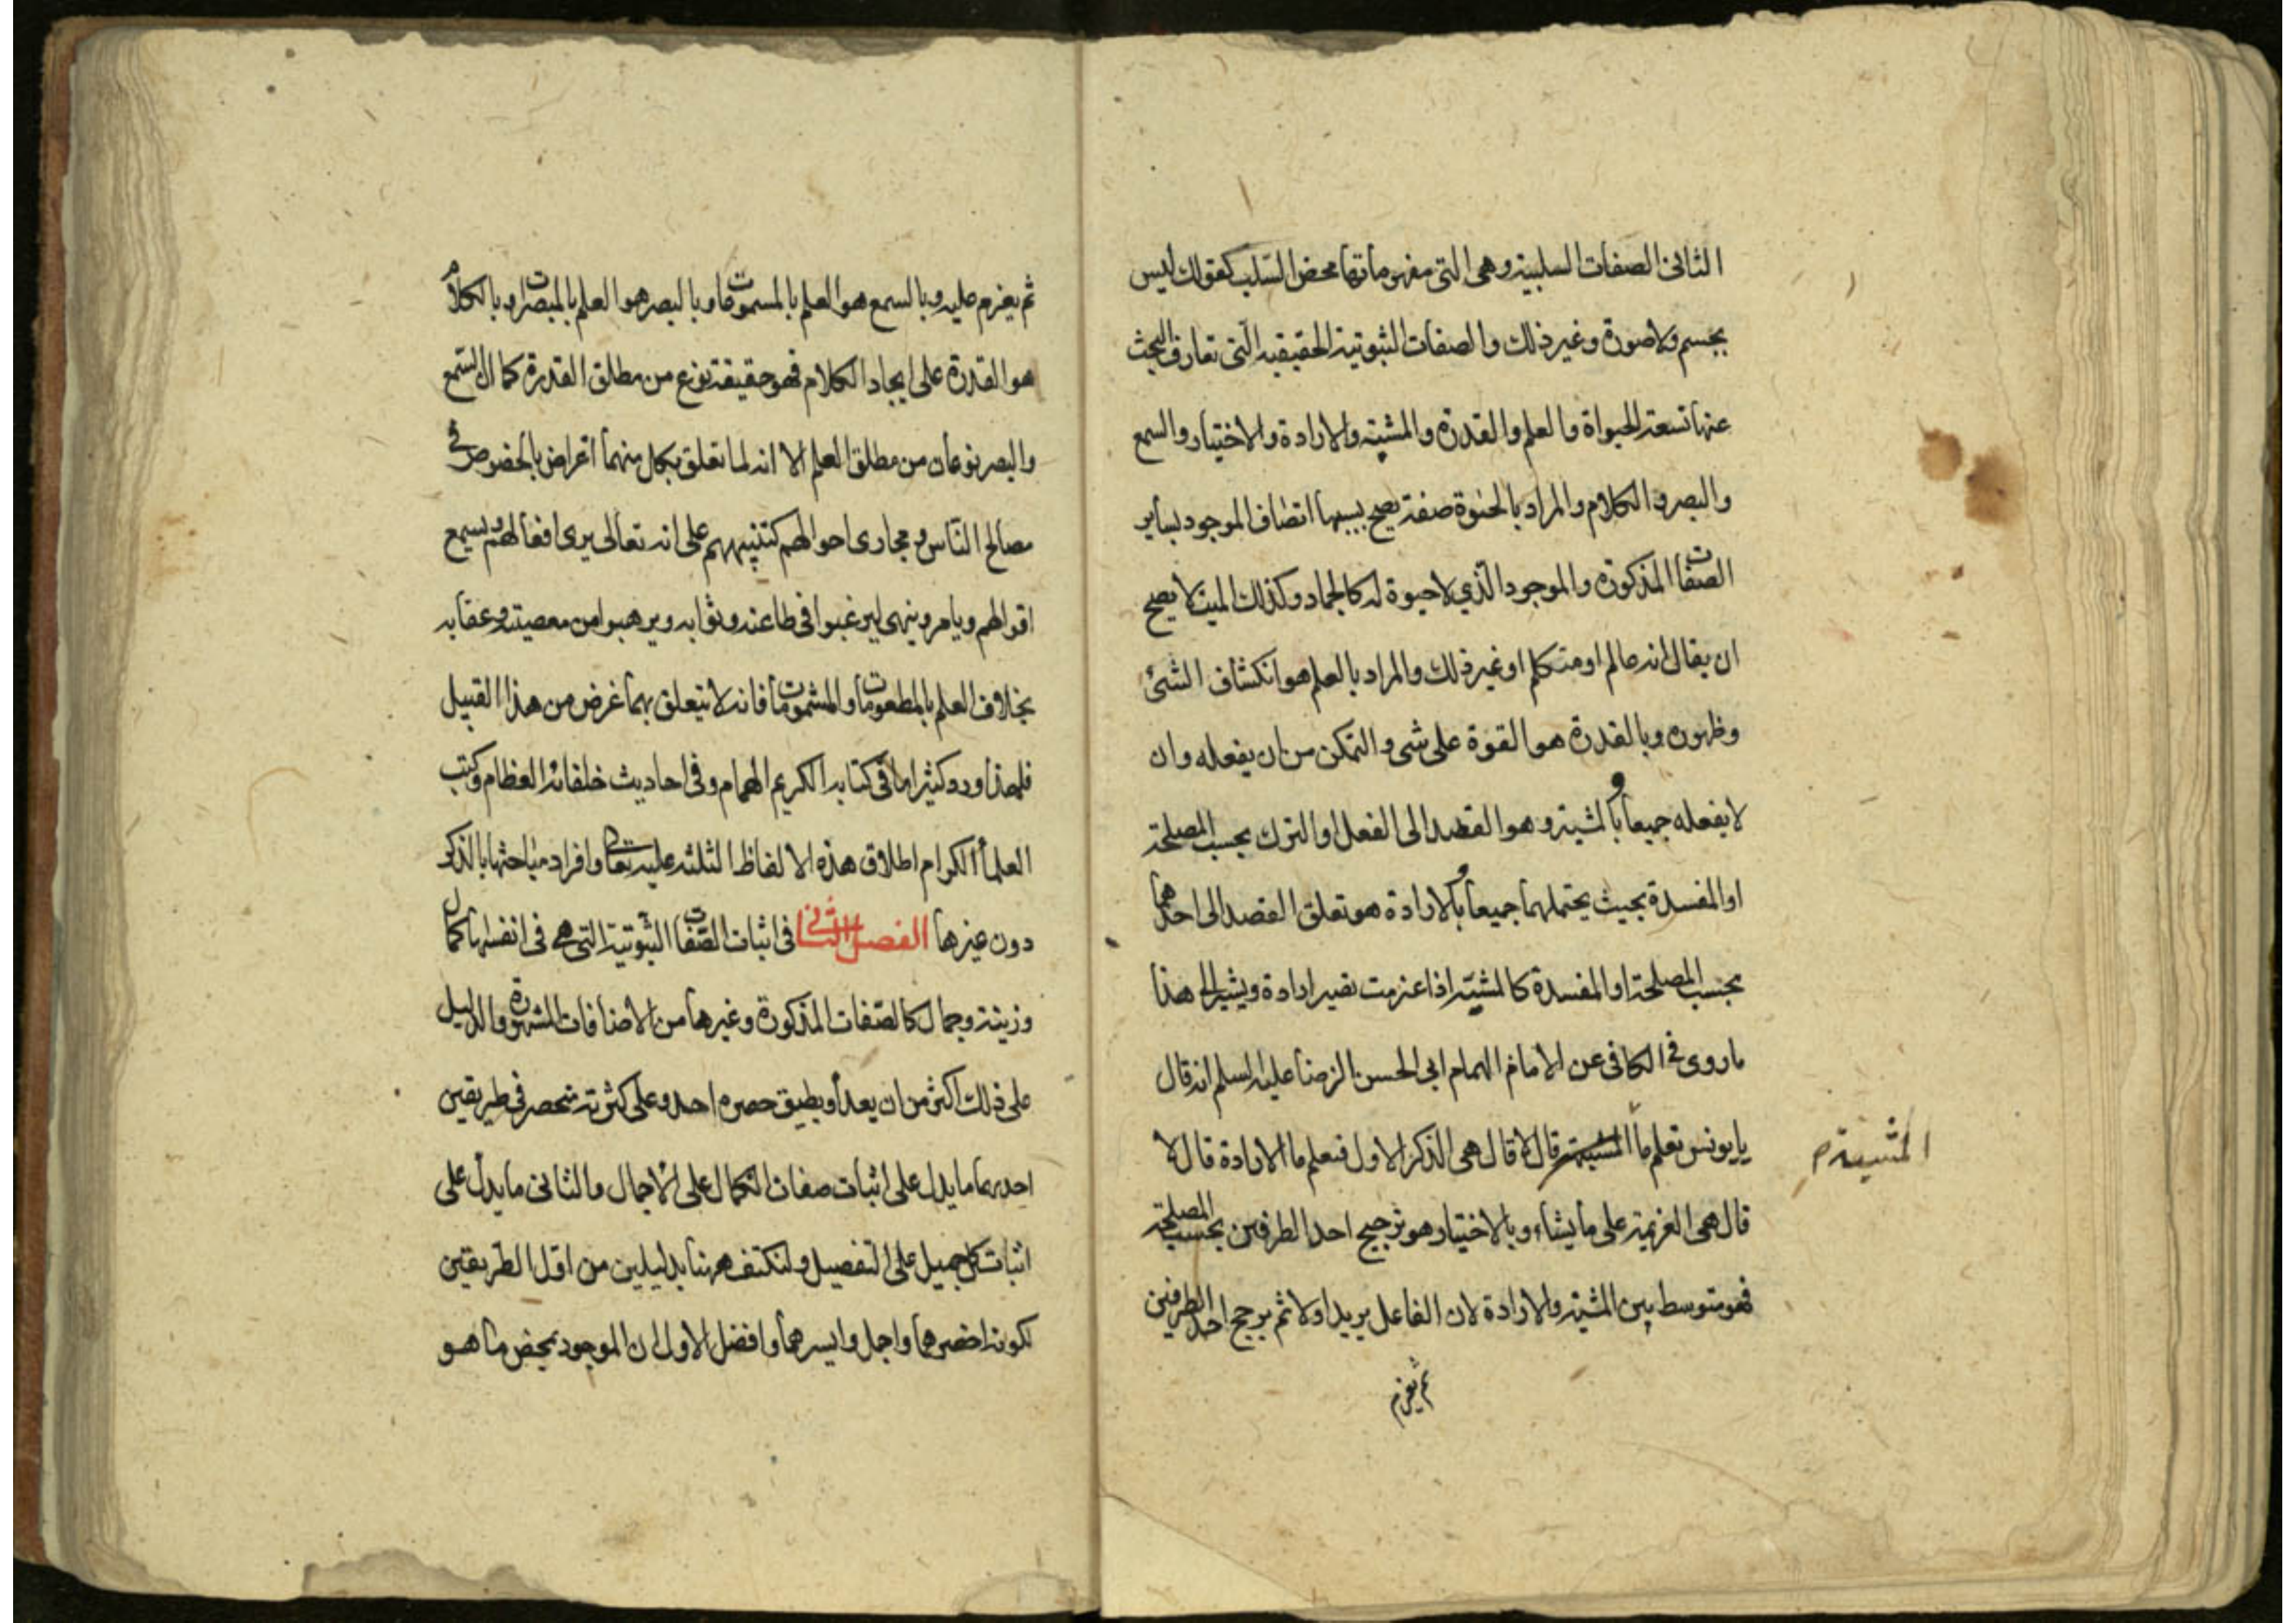 الثانی الصفات السلبیة وهی التی مفهوماتها محض السّلب کقولك لیس
بجسم ولا صورة وغیر ذلك والصفات الثبوتیة الحقیقیه الّتی تعارف البحث
عنها تسعة الحیواة والعلم والقدرة والمشیة والارادة والاختیار والسمع
والبصر والکلام والمراد بالحیوة صفة یصح بسببها اتصاف الموجود بسایر
الصفات المذکورة والموجود الّذی لا حیوة له کالجماد وکذلك المیت لا یصح
ان یقال انه عالم او متکلم او غیر ذلك والمراد بالعلم هو انکشاف الشئ
وظهوره وبالقدرة هو القوة علی شی والتمکن من ان یفعله وان
لا یفعله جمیعا وبالمشیة وهو القصد الی الفعل او الترك بحسب المصلحة
او المفسدة بحیث یحتملهما جمیعا وبالارادة هو تعلق القصد الی احدهما
بحسب المصلحة او المفسدة کالمشیّة اذا عزمت تصیر ارادة ویشیر الی هذا
ما روی فی الکافی عن الامام الهمام ابی الحسن الرضا علیه السلم انه قال
یا یونس تعلم ما المشیة قال لا قال هی الذکر الاول فتعلم ما الارادة قال لا
المشیة م
قال هی العزیمة علی ما یشاء وبالاختیار هو ترجیح احد الطرفین بحسب المصلحة
فهو متوسط بین المشیة والارادة لان الفاعل یرید اولا ثم یرجح احد الطرفین
ثم یعزم
ثم یعزم علیه وبالسمع هو العلم بالمسموعات وبالبصر هو العلم بالمبصرات وبالکلام
هو القدرة علی ایجاد الکلام فهو حقیقة نوع من مطلق القدرة کما ان السّمع
والبصر نوعان من مطلق العلم الا انه لما تعلق بکل منهما اغراض بالخصوص فی
مصالح النّاس ومجاری احوالهم کتنبیههم علی انه تعالی یری افعالهم ویسمع
اقوالهم ویامر وینهی لیرغبوا فی طاعته وثوابه ویرهبوا من معصیته وعقابه
بخلاف العلم بالمطعومات والمشمومات فانه لا یتعلق بهما غرض من هذا القبیل
فلهذا ورد کثیرا ما فی کتابه الکریم الهمام وفی احادیث خلفائه العظام وکتب
العلماء الکرام اطلاق هذه الالفاظ الثلثه علیه تعالی وافراد مباحثها بالذکر
دون غیرها الفصل الثانی فی اثبات الصّفات الثبوتیة التی هی فی انفسها کمال
وزینة وجمال کالصّفات المذکورة وغیرها من الاضافات المشهورة والدلیل
علی ذلك اکثر من ان یعد او یطیق حصره احد وعلی کثرته منحصر فی طریقین
احدهما ما یدل علی اثبات صفات الکمال علی الاجمال والثانی ما یدل علی
اثبات کل جمیل علی التفصیل ولنکتف ههنا بدلیلین من اقل الطریقین
لکونه اخصرهما واجمل وایسرهما وافضل الاول ان الموجود بمحض ما هو